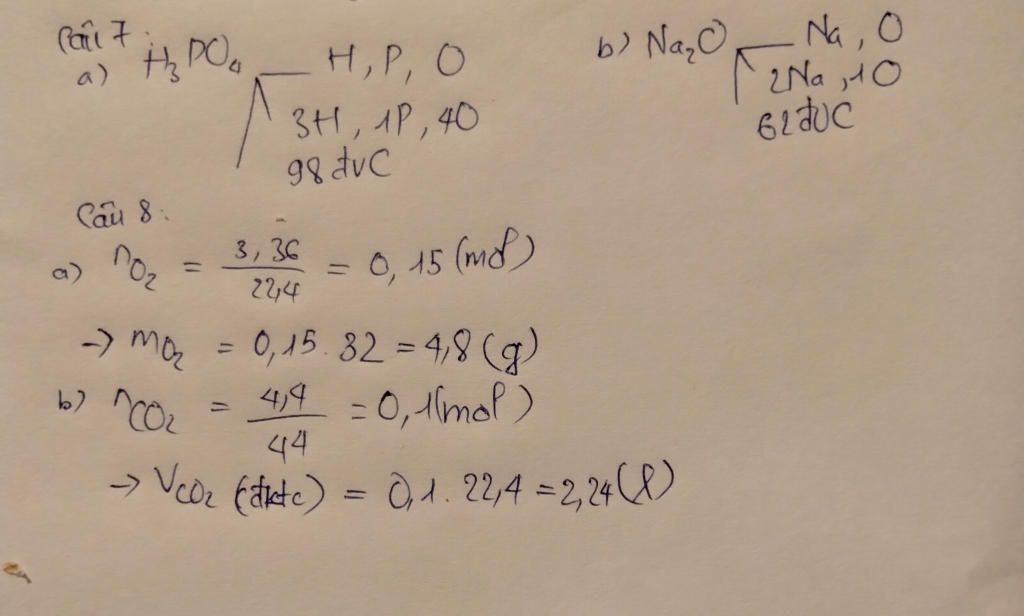 Câu 7:
a) H₃PO₄ H, P, O
3H, 1P, 4O
98 đvC
b) Na₂O Na, O
2Na, 1O
62 đvC
Câu 8:
a) nO₂ = 3,36/22,4 = 0,15 (mol)
→ mO₂ = 0,15 . 32 = 4,8 (g)
b) nCO₂ = 4,4/44 = 0,1 (mol)
→ VCO₂ (đktc) = 0,1 . 22,4 = 2,24 (l)